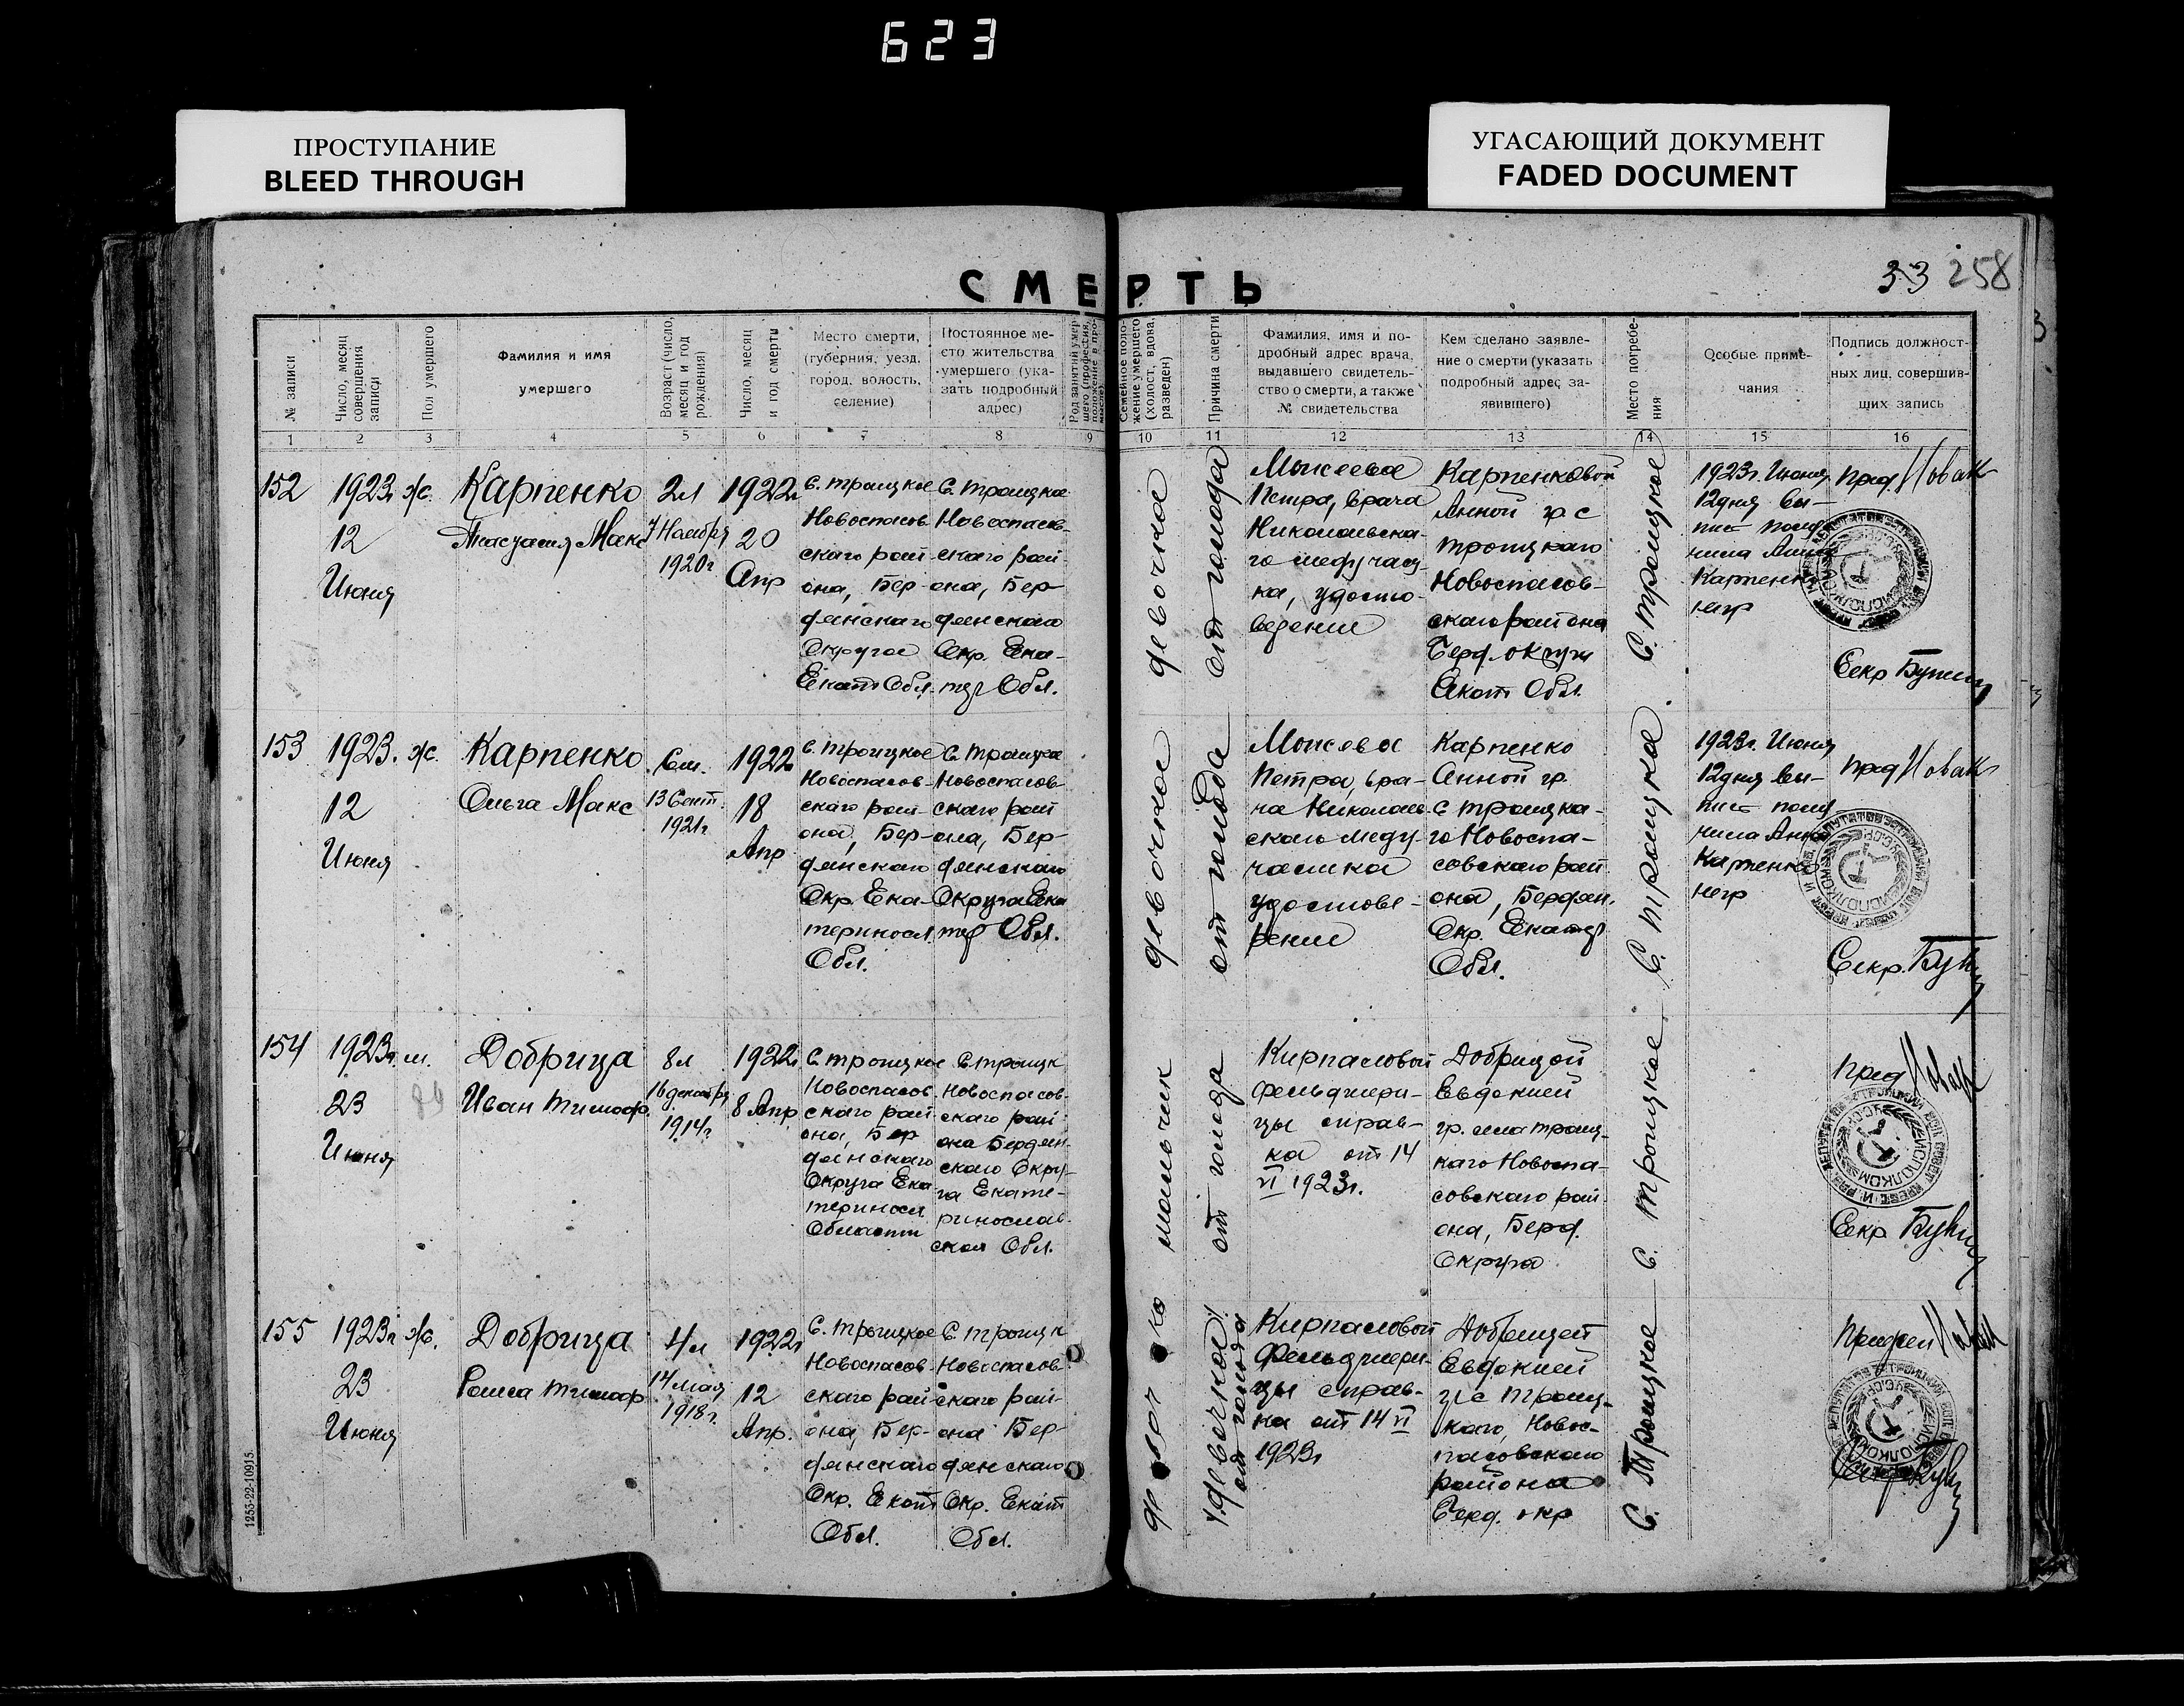 623
ПРОСТУПАНИЕ
BLEED THROUGH
УГАСАЮЩИЙ ДОКУМЕНТ
FADED DOCUMENT
33 258
СМЕРТЬ
№ записи
Число, месяц совершения записи
Пол умершего
Фамилия и имя
умершего
Возраст (число, месяц и год рождения)
Число, месяц и год смерти
Место смерти,
(губерния, уезд,
город, волость,
селение)
Постоянное ме-
сто жительства
умершего (ука-
зать подробный
адрес)
Семейное поло-
жение умершего
(холост, вдова,
разведен)
Причина смерти
Фамилия, имя и по-
дробный адрес врача,
выдавшего свидетель-
ство о смерти, а также
№ свидетельства
Кем сделано заявле-
ние о смерти (указать
подробный адрес за-
явившего)
Место погребе-
ния
Особые приме-
чания
Подпись должност-
ных лиц, совершив-
ших запись
1 2 3 4 5 6 7 8 9 10 11 12 13 14 15 16
152
1923г
12
Июня
ж.
Карпенко
Макс
2л
7 Ноября
1920г
1922г
20
Апр
с. Троицкое
Новоспасов-
скаго рай-
она, Бер-
дянскаго
Округа
Екат Обл.
С. Троицкое
Новоспасов-
скаго рай-
она, Бер-
дянскаго
Окр. Ека-
Обл.
девочка
от голода
Моисеева
Петра, врача
Николаевска-
го
Карпенковой
Анной гр с
Троицкаго
Новоспасов-
скаго района
Берд. округ
Екат Обл.
С. Троицкое
1923г. Июня
12 дня вы-
пись полу-
чила Анна
Карпенко
негр
Пред. Новак
Секр
153
1923г.
12
Июня
ж.
Карпенко
Ольга Макс
6м.
13 Сент.
1921г.
1922г
18
Апр
с. Троицкое
Новоспасов-
скаго рай-
она, Бер-
дянскаго
Окр. Ека-
териносл.
Обл.
С. Троицка
Новоспасов-
скаго рай-
она, Бер-
дянскаго
Округа Ека
Обл.
девочка
от голода
Моисеева
Петра, вра-
ча Николаев
скаго меду-
частка
удостове-
рение
Карпенко
Анной гр.
с Троицка-
го Новоспа-
совскаго рай
она, Бердян.
Окр. Екатер
Обл.
С. Троицкое
1923г. Июня
12 дня вы-
пись полу
чила Анна
Карпенко
негр
Пред Новак
Секр.
154
1923г.
23
Июня
м.
Добрица
Иван Тимоф.
8л
16 декабря
1914г.
1922г
8 Апр
С. Троицкое
Новоспасов
скаго рай-
она, Бер
дянскаго
Округа Ека-
териносл
Области
С. Троицк
Новоспасов-
скаго рай-
она Бердян-
скаго Окру-
га Екате-
ринослав-
ская Обл.
мальчик
от голода
Кирпасовой
Фельдшери-
цы справ-
ка от 14
VI 1923г.
Добрицой
Евдокией
гр. села Троиц-
каго Новоспа-
совскаго рай
она, Берд.
Округа
С. Троицкое
Пред Новак
Секр
155
1923г
23
Июня
ж.
Добрица
Раиса Тимоф
4л
14 Мая
1918г.
1922г
12
Апр.
С. Троицкое
Новоспасов-
скаго рай-
она, Бер-
дянскаго
Окр. Екат
Обл.
С. Троицк
Новоспасов-
скаго рай-
она Бер-
дянскаго
Окр. Екат
Обл.
девочка
от голода
Кирпасовой
Фельдшери-
цы справ-
ка от 14 VI
1923г
Добрицей
Евдокией
гр с Троиц-
каго, Новос-
пасовскаго
района
Берд. окр
С. Троицкое
1253-22-10915.